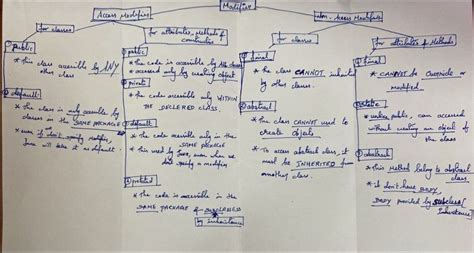 Modifier
Access Modifier
Non-Access Modifier
for classes
for attributes, Methods &
Constructors
for classes
for attributes & Methods
① public
* this class accessible by ANY
other class
② default
* the class is only accessible by
classes in the SAME PACKAGE
* even if don't specify modifier,
Java will take it as default.
① public
* the code is accessible by
* accessed only by creating object
② private
* the code accessible only WITHIN
THE DECLARED CLASS.
③ default
* the code accessible only in the
SAME PACKAGE
* this used by Java, even when we
don't specify a modifier
④ protected
* the code is accessible in the
SAME PACKAGE & SUBCLASSES
by inheritance
① final
* the class CANNOT inherited
by other classes.
② abstract
* the class CANNOT used to
create objects
* To access abstract class, it
must be INHERITED from
another class.
① final
* CANNOT be OVERRIDE or
modified
② static
* public, can accessed
without creating an object of
the class
③ abstract
* this Method belong to abstract
class.
* It don't have BODY,
BODY provided by subclass [
Inheritance]